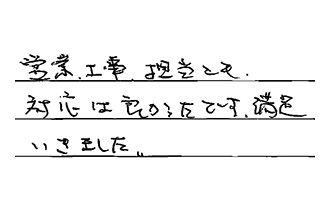 営業、工事、担当とも、
対応は良かったです。満足
いきました。